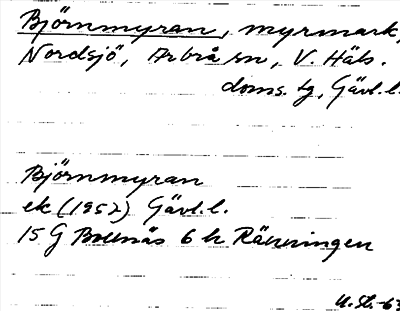 Björnmyran, myrmark,
Nordsjö, Arbrå sn, V. Häls.
doms. tg, Gävl.l.
Björnmyran
ek (1957) Gävl.l.
15 G Bollnäs 6 h Röstringen
U.St.-63